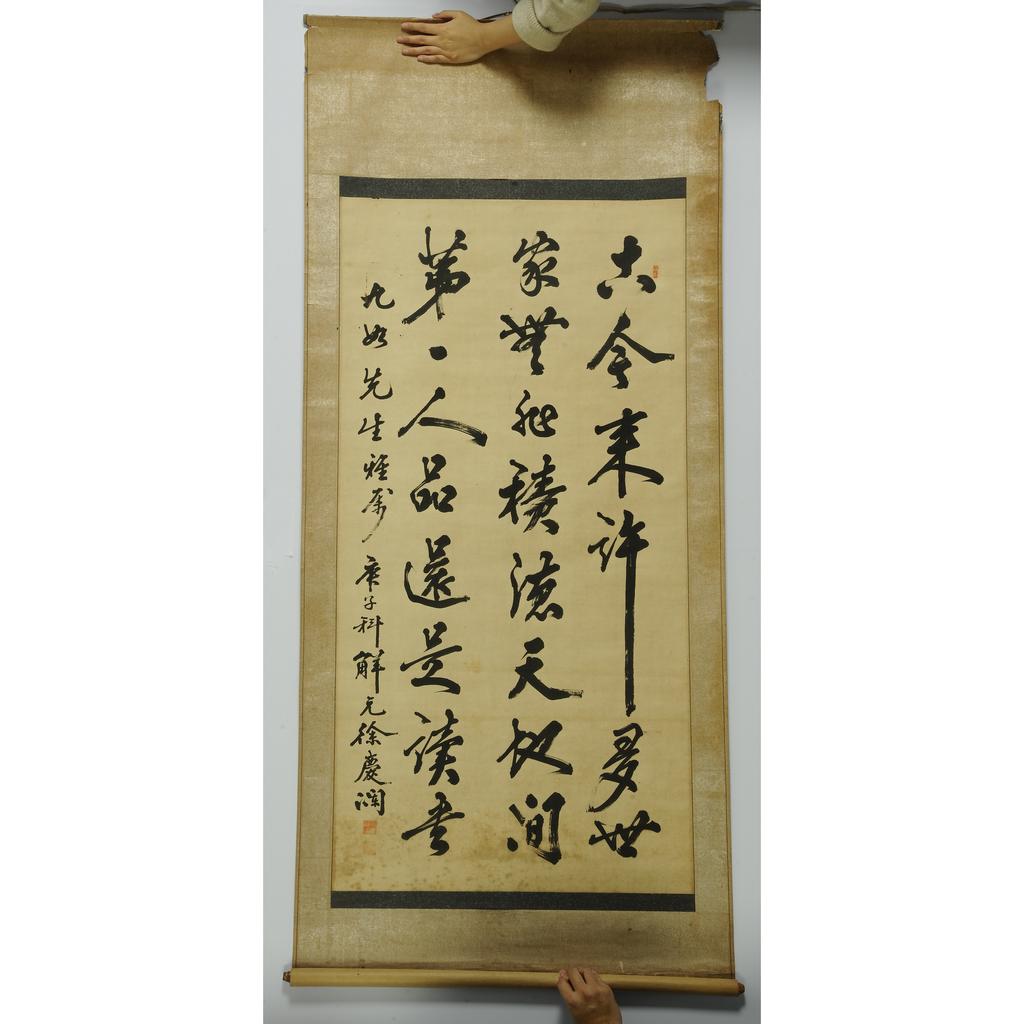 古今来許多世
家無非積德天地間
第一人品還是讀書
九如先生雅屬 庚子科解元徐慶瀾